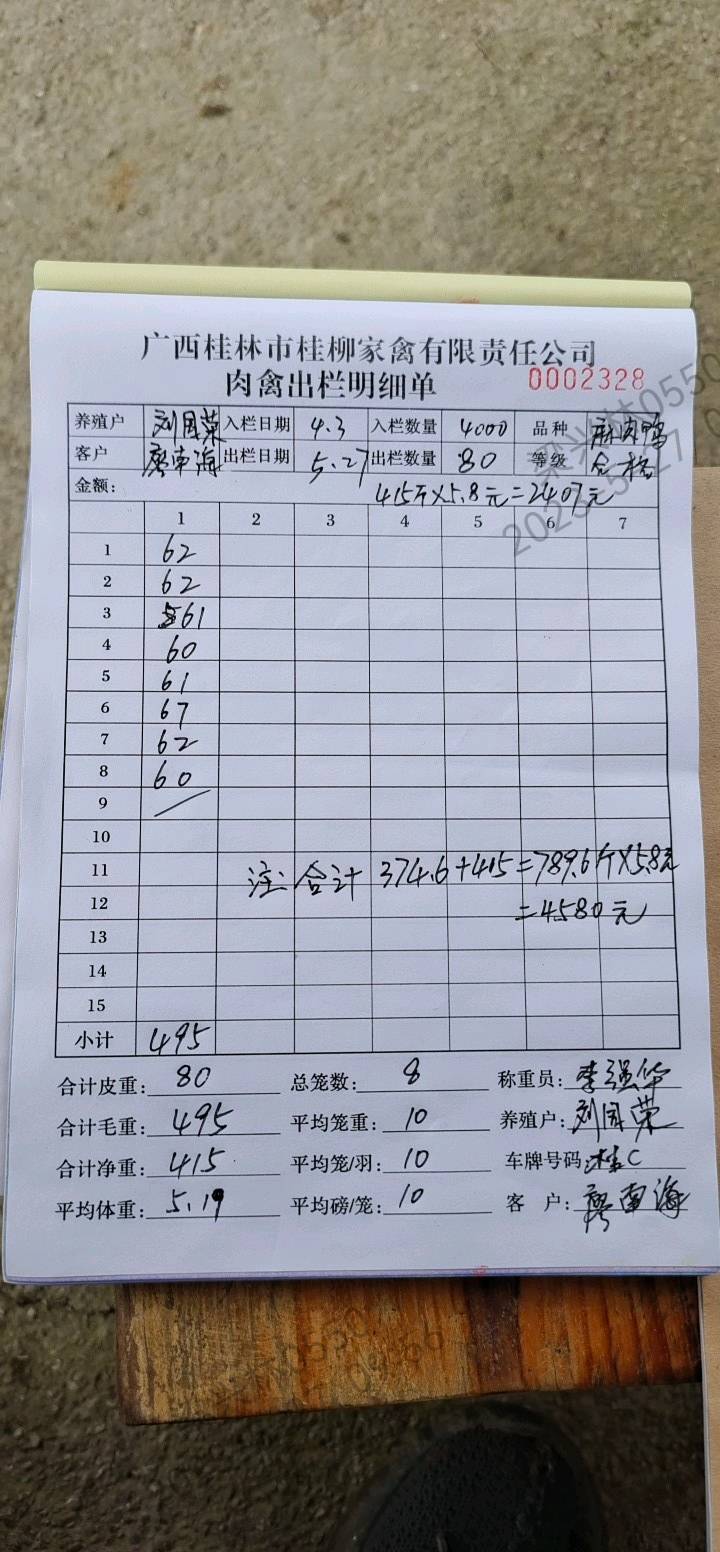 广西桂林市桂柳家禽有限责任公司
肉禽出栏明细单 0002328
养殖户 刘国荣 入栏日期 4.3 入栏数量 4000 品种 麻肉鸭
客户 廖南海 出栏日期 5.27 出栏数量 80 等级 合格
金额: 415斤×5.8元=2407元
1 2 3 4 5 6 7
1 62
2 62
3 61
4 60
5 61
6 67
7 62
8 60
9
10
11
注:合计 374.6+415=789.6斤×5.8元
12
=4580元
13
14
15
小计 495
合计皮重: 80 总笼数: 8 称重员: 李强华
合计毛重: 495 平均笼重: 10 养殖户: 刘国荣
合计净重: 415 平均笼/羽: 10 车牌号码: 桂C
平均体重: 5.19 平均磅/笼: 10 客 户: 廖南海